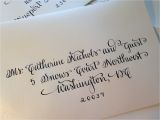 Ms. Catherine Nichols and Guest
5 Snows Court Northwest
Washington, DC
20037